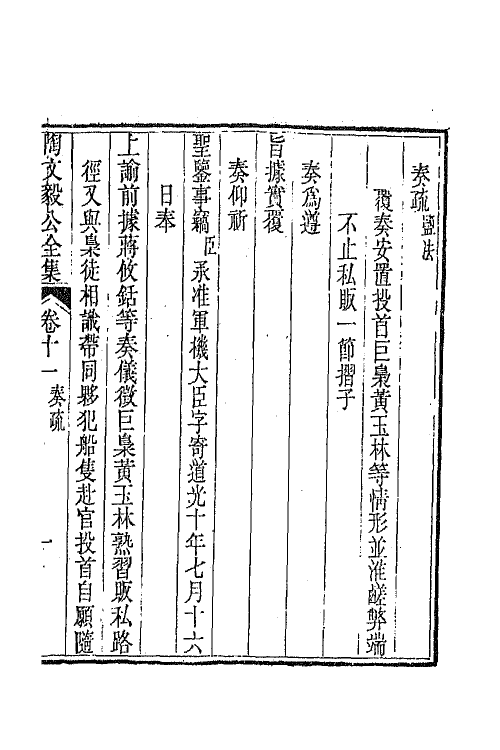 奏疏 鹽法
覆奏安置投首巨梟黃玉林等情形並淮鹾弊端
不止私販一節摺子
奏爲遵
旨據實覆
奏仰祈
聖鑒事竊臣承准軍機大臣字寄道光十年七月十六
日奉
上諭前據蔣攸銛等奏儀徵巨梟黃玉林熟習販私路
徑又與梟徒相識帶同夥犯船隻赴官投首自願隨
陶文毅公全集 卷十一 奏疏 一